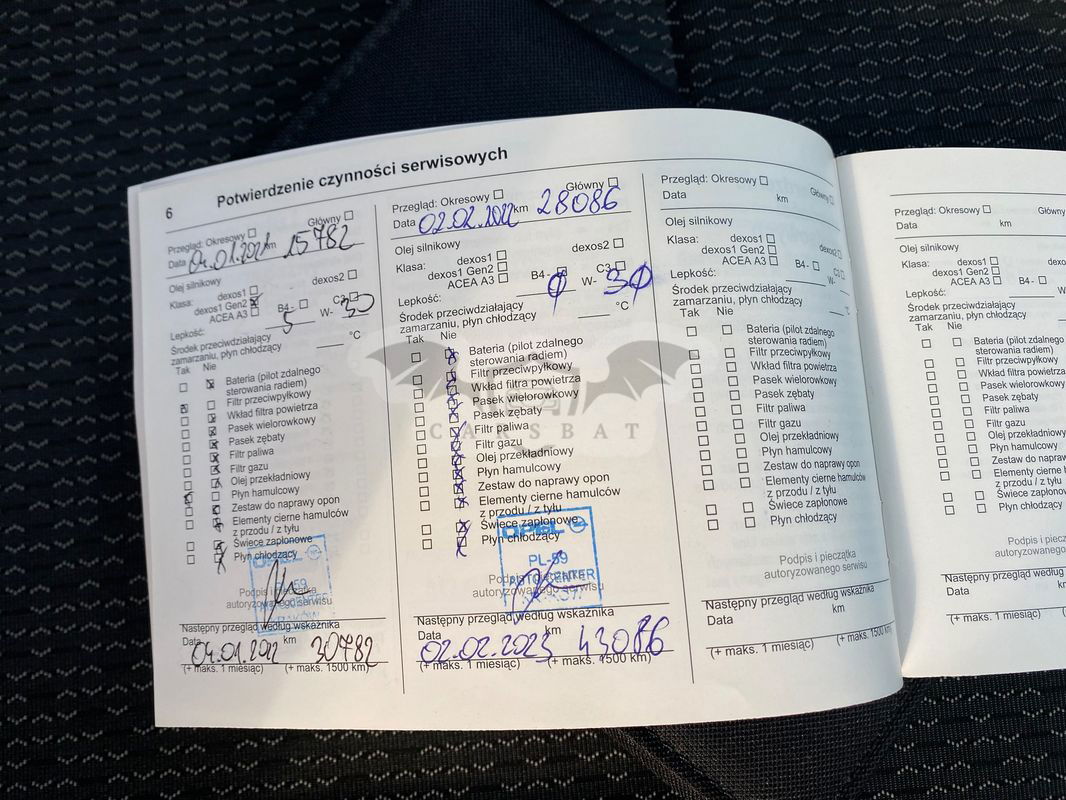 6 Potwierdzenie czynności serwisowych
Przegląd: Okresowy Główny
Data 04.01.2021 km 15782
Olej silnikowy
Klasa: dexos1 dexos2
dexos1 Gen2
ACEA A3 B4- C3
Lepkość: 5 W- 30
Środek przeciwdziałający
zamarzaniu, płyn chłodzący °C
Tak Nie
Bateria (pilot zdalnego
sterowania radiem)
Filtr przeciwpyłkowy
Wkład filtra powietrza
Pasek wielorowkowy
Pasek zębaty
Filtr paliwa
Filtr gazu
Olej przekładniowy
Płyn hamulcowy
Zestaw do naprawy opon
Elementy cierne hamulców
z przodu / z tyłu
Świece zapłonowe
Płyn chłodzący
OPEL
Podpis i pieczątka
autoryzowanego serwisu
Następny przegląd według wskaźnika
Data 04.01.2022 km 30782
(+ maks. 1 miesiąc) (+ maks. 1500 km)
Przegląd: Okresowy Główny
Data 02.02.2022 km 28086
Olej silnikowy
Klasa: dexos1 dexos2
dexos1 Gen2
ACEA A3 B4- C3
Lepkość: 0 W- 30
Środek przeciwdziałający
zamarzaniu, płyn chłodzący °C
Tak Nie
Bateria (pilot zdalnego
sterowania radiem)
Filtr przeciwpyłkowy
Wkład filtra powietrza
Pasek wielorowkowy
Pasek zębaty
Filtr paliwa
Filtr gazu
Olej przekładniowy
Płyn hamulcowy
Zestaw do naprawy opon
Elementy cierne hamulców
z przodu / z tyłu
Świece zapłonowe
Płyn chłodzący
OPEL
PL-59
Podpis i pieczątka
autoryzowanego serwisu
Następny przegląd według wskaźnika
Data 02.02.2023 km 43086
(+ maks. 1 miesiąc) (+ maks. 1500 km)
Przegląd: Okresowy Główny
Data km
Olej silnikowy
Klasa: dexos1 dexos2
dexos1 Gen2
ACEA A3 B4- C3
Lepkość: W-
Środek przeciwdziałający
zamarzaniu, płyn chłodzący °C
Tak Nie
Bateria (pilot zdalnego
sterowania radiem)
Filtr przeciwpyłkowy
Wkład filtra powietrza
Pasek wielorowkowy
Pasek zębaty
Filtr paliwa
Filtr gazu
Olej przekładniowy
Płyn hamulcowy
Zestaw do naprawy opon
Elementy cierne hamulców
z przodu / z tyłu
Świece zapłonowe
Płyn chłodzący
Podpis i pieczątka
autoryzowanego serwisu
Następny przegląd według wskaźnika
Data km
(+ maks. 1 miesiąc) (+ maks. 1500 km)
Przegląd: Okresowy
Data km
Olej silnikowy
Klasa: dexos1
dexos1 Gen2
ACEA A3 B4-
Lepkość:
Środek przeciwdziałający
zamarzaniu, płyn chłodzący
Tak Nie
Bateria (pilot zdalnego
sterowania radiem)
Filtr przeciwpyłkowy
Wkład filtra powietrza
Pasek wielorowkowy
Pasek zębaty
Filtr paliwa
Filtr gazu
Olej przekładniowy
Płyn hamulcowy
Zestaw do naprawy
Elementy cierne
z przodu / z tyłu
Świece zapłonowe
Płyn chłodzący
Podpis i
Następny przegląd według
Data km
(+ maks. 1 miesiąc) (+ maks.
CARSBAT